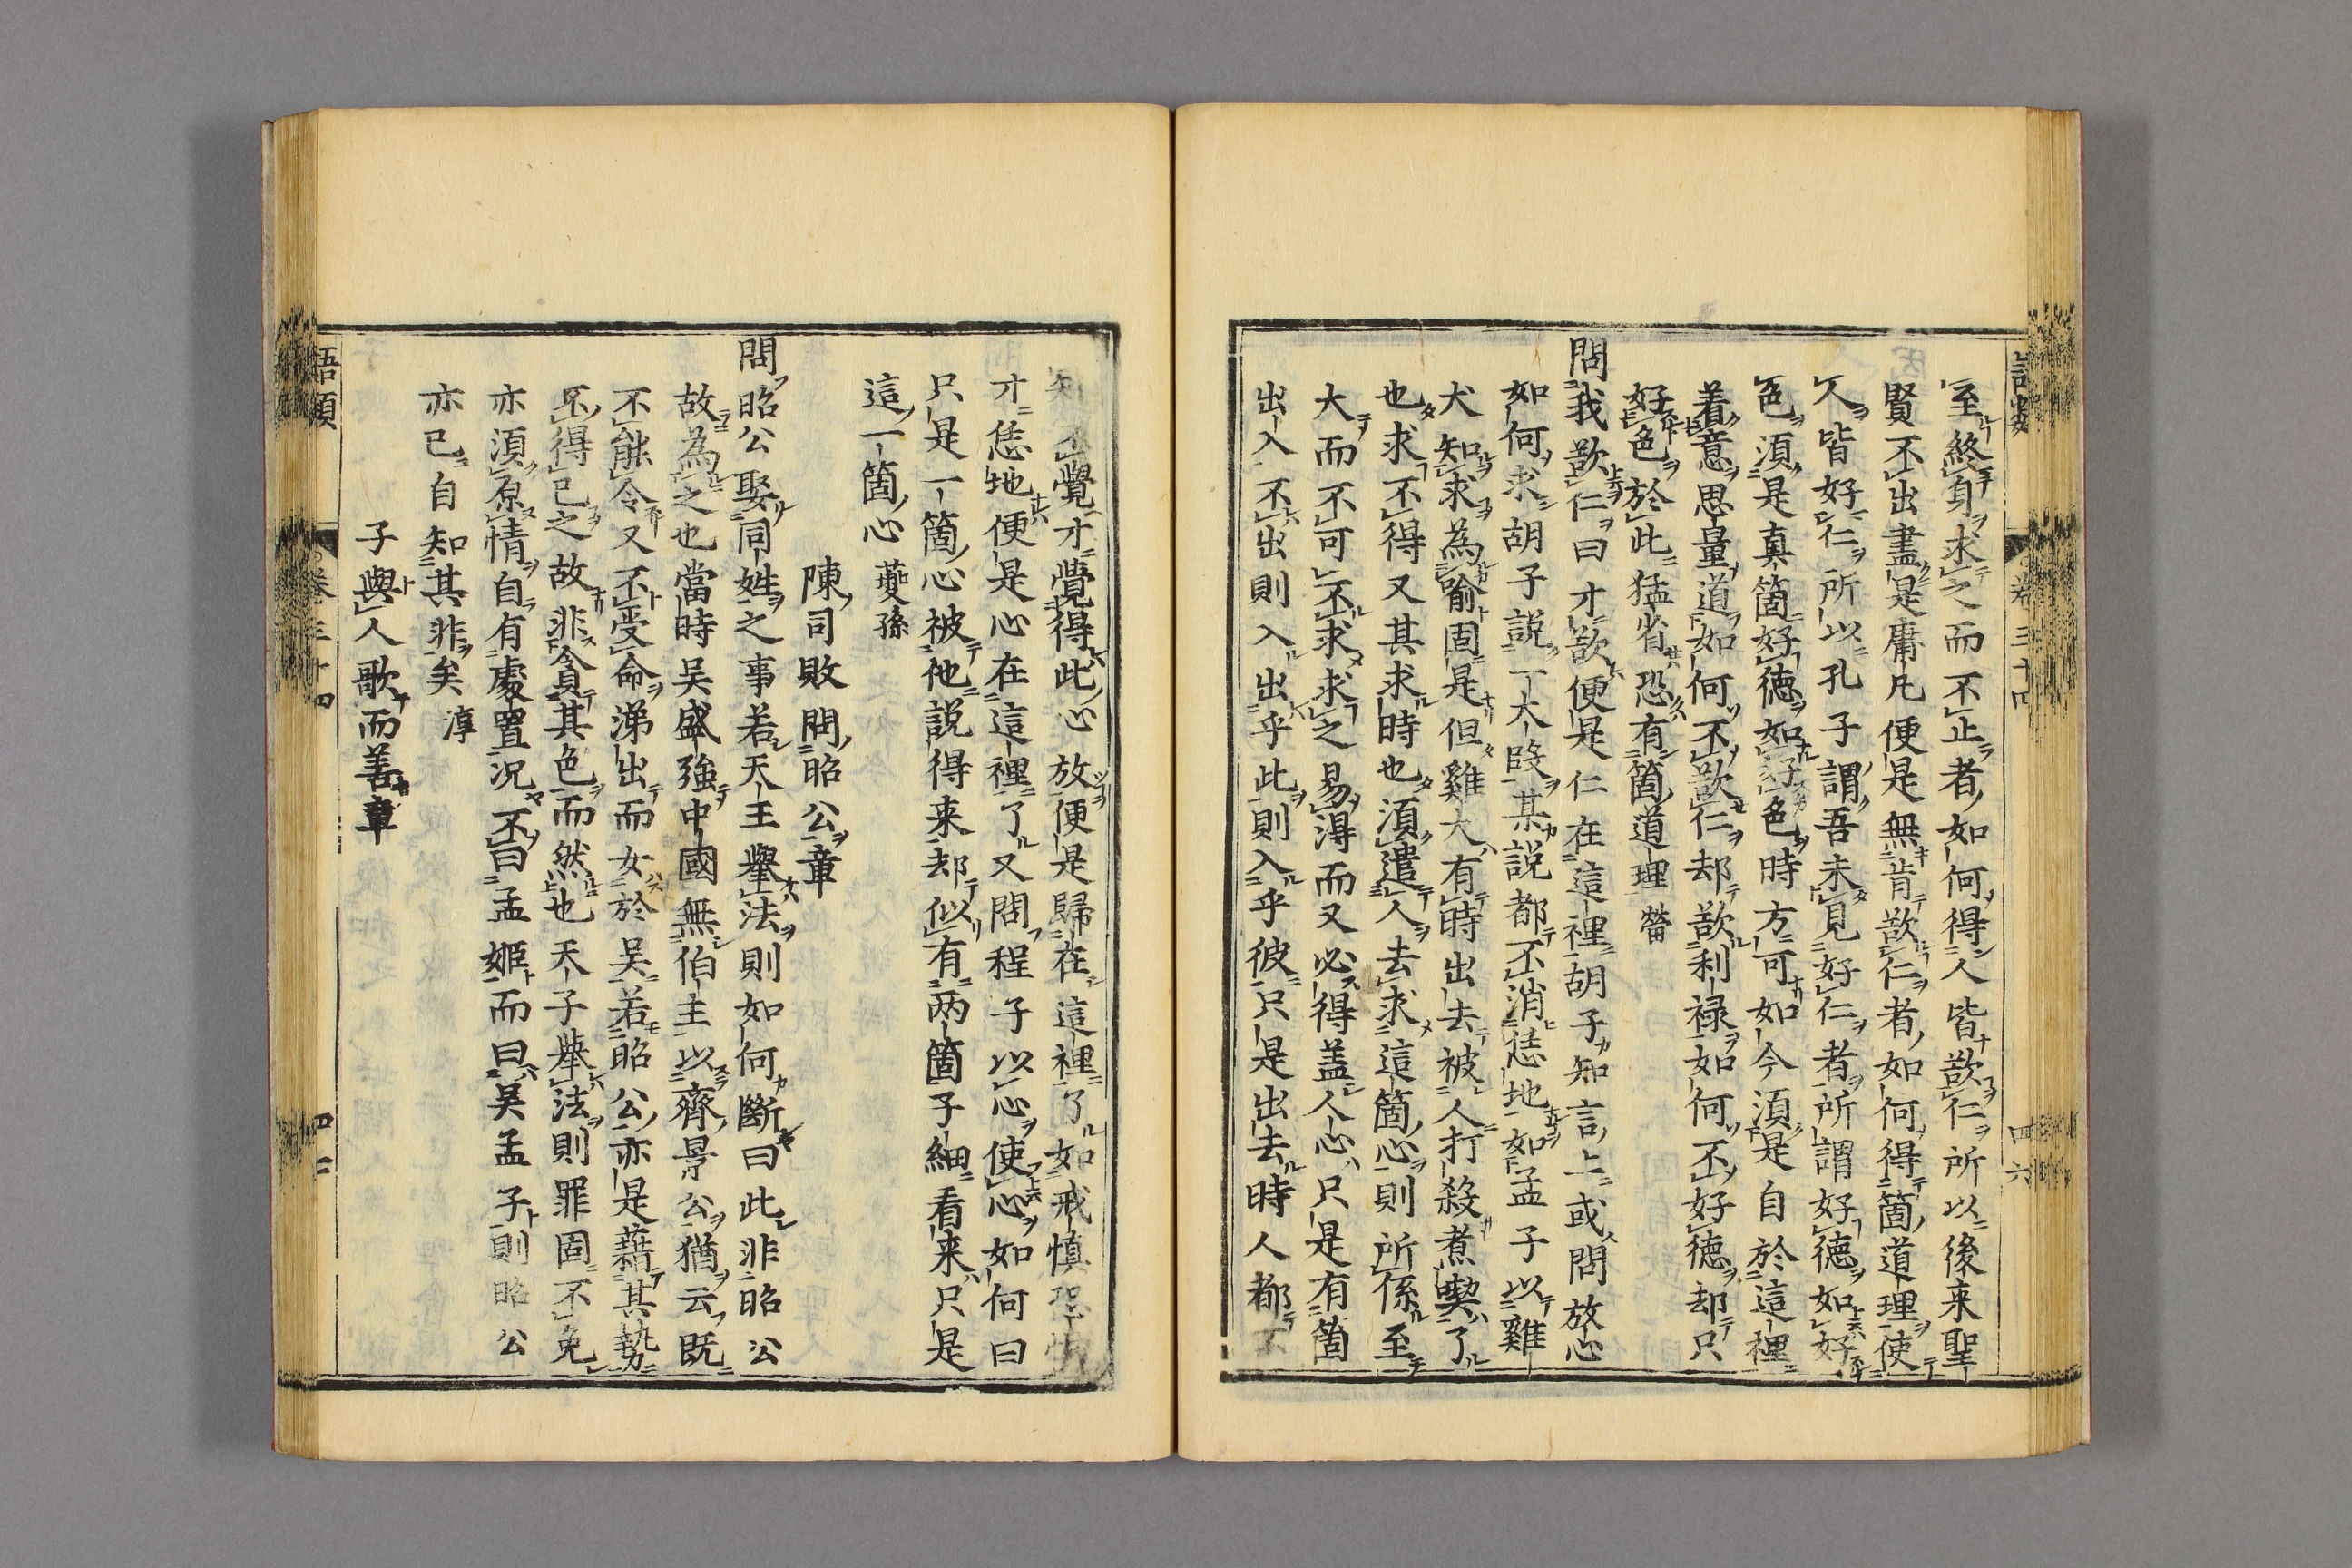 語類　卷三十四　四六
至終身求之而不止者如何得人皆欲仁所以後来聖
賢不出盡是庸凡便是無肯欲仁者如何得箇道理使
人皆好仁所以孔子謂吾未見好仁者所謂好德如好
色須是真箇好德如好色時方可如今須是自於這裡
着意思量道如何不欲仁却欲利禄如何不好德却只
好色於此猛省恐有箇道理 㽦
問我欲仁曰才欲便是仁在這裡胡子知言上或問放心
如何求胡子說一大段某說都不消恁地如孟子以雞
犬知求為喻固是但雞犬有時出去被人打殺煮喫了
也求不得又其求時也須遣人去求這箇心則所係至
大而不可不求求之易得而又必得盖人心只是有箇
出入不出則入出乎此則入乎彼只是出去時人都不
知不覺才覺得此心放便是歸在這裡了如戒慎恐懼
才恁地便是心在這裡了又問程子以心使心如何曰
只是一箇心被他說得来却似有两箇子細看来只是
這一箇心 夔孫
陳司敗問昭公章
問昭公娶同姓之事若天王舉法則如何斷曰此非昭公
故為之也當時吳盛強中國無伯主以齊景公猶云既
不能令又不受命涕出而女於吳若昭公亦是藉其勢
不得已之故非貪其色而然也天子舉法則罪固不免
亦須原情自有處置况不曰孟姬而曰吳孟子則昭公
亦已自知其非矣 淳
子與人歌而善章
語類　卷三十四